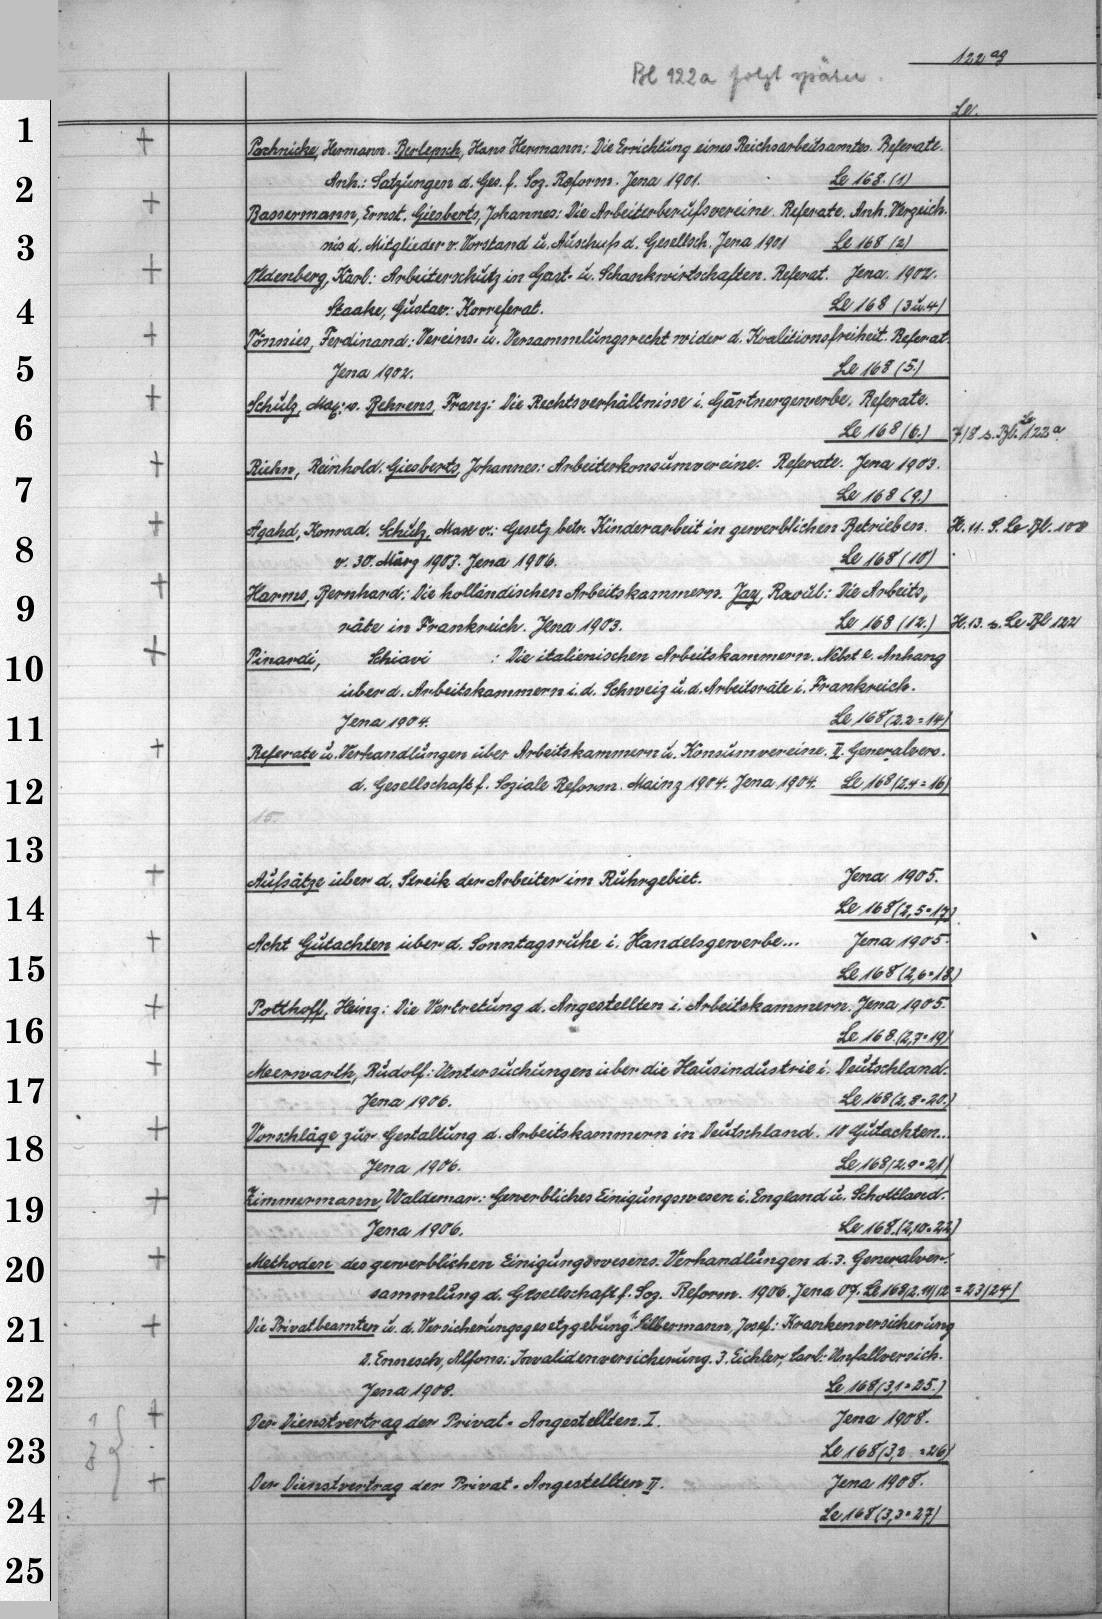 122 ag
Bl 122a folgt später.
Le.
1
Pachnicke, Hermann. Berlepsch, Hans Hermann: Die Errichtung eines Reichsarbeitsamtes. Referate.
Anh.: Satzungen d. Ges. f. Soz. Reform. Jena 1901. Le 168. (1)
2
Bassermann, Ernst. Giesberts, Johannes: Die Arbeiterberufsvereine. Referate. Anh. Verzeich.
nis d. Mitglieder v. Vorstand u. Ausschuß d. Gesellsch. Jena 1901 Le 168 (2)
3
Oldenberg, Karl: Arbeiterschutz in Gast- u. Schankwirtschaften. Referat. Jena 1902.
4
Staake, Gustav: Korreferat. Le 168 (3 u. 4)
Tönnies, Ferdinand: Vereins- u. Versammlungsrecht wider d. Koalitionsfreiheit. Referat.
5
Jena 1902. Le 168 (5.)
Schulz, v. Behrens, Franz: Die Rechtsverhältnisse i. Gärtnergewerbe. Referate.
6
Le 168 (6.) 7/8 s. Bl. Le 122a
Riehn, Reinhold. Giesberts, Johannes: Arbeiterkonsumvereine. Referate. Jena 1903.
7
Le 168 (9.)
Agahd, Konrad. Schulz, Max v.: Gesetz betr. Kinderarbeit in gewerblichen Betrieben. H. 11. S. Le Bl. 108
8
v. 30. März 1903. Jena 1906. Le 168 (10)
Harms, Bernhard: Die holländischen Arbeitskammern. Jay, Raoul: Die Arbeits,
9
räte in Frankreich. Jena 1903. Le 168 (12.) H. 13. s. Le Bl 122
10
Pinardi, Schiavi : Die italienischen Arbeitskammern. Nebst e. Anhang
über d. Arbeitskammern i. d. Schweiz u. d. Arbeitsräte i. Frankreich.
11
Jena 1904. Le 168 (2.2 = 14)
Referate u. Verhandlungen über Arbeitskammern u. Konsumvereine. II. Generalvers.
12
d. Gesellschaft f. Soziale Reform. Mainz 1904. Jena 1904. Le 168 (2.4 = 16)
15.
13
Aufsätze über d. Streik der Arbeiter im Ruhrgebiet. Jena 1905.
14
Le 168 (2,5 = 17)
Acht Gutachten über d. Sonntagsruhe i. Handelsgewerbe... Jena 1905.
15
Le 168 (2,6 = 18.)
Potthoff, Heinz: Die Vertretung d. Angestellten i. Arbeitskammern. Jena 1905.
16
Le 168. (2,7 = 19)
Meerwarth, Rudolf: Untersuchungen über die Hausindustrie i. Deutschland.
17
Jena 1906. Le 168 (2,8 = 20.)
Vorschläge zur Gestaltung d. Arbeitskammern in Deutschland. 10 Gutachten...
18
Jena 1906. Le 168 (2.9 = 21)
Zimmermann, Waldemar: Gewerbliches Einigungswesen i. England u. Schottland.
19
Jena 1906. Le 168. (2,10 = 22)
20
Methoden des gewerblichen Einigungswesens. Verhandlungen d. 3. Generalver.
sammlung d. Gesellschaft f. Soz. Reform. 1906. Jena 07. Le 168 (2.11/12 = 23/24)
21
Die Privatbeamten u. d. Versicherungsgesetzgebung. 1. Silbermann, Josef: Krankenversicherung
2. Ennesch, Alfons: Invalidenversicherung. 3. Eichler, Carl: Unfallversich.
22
Jena 1908. Le 168 (3,1 = 25.)
Der Dienstvertrag der Privat-Angestellten. I. Jena 1908.
23
Le 168 (3,2 = 26)
Der Dienstvertrag der Privat-Angestellten II. Jena 1908.
24
Le 168 (3,3 = 27)
25